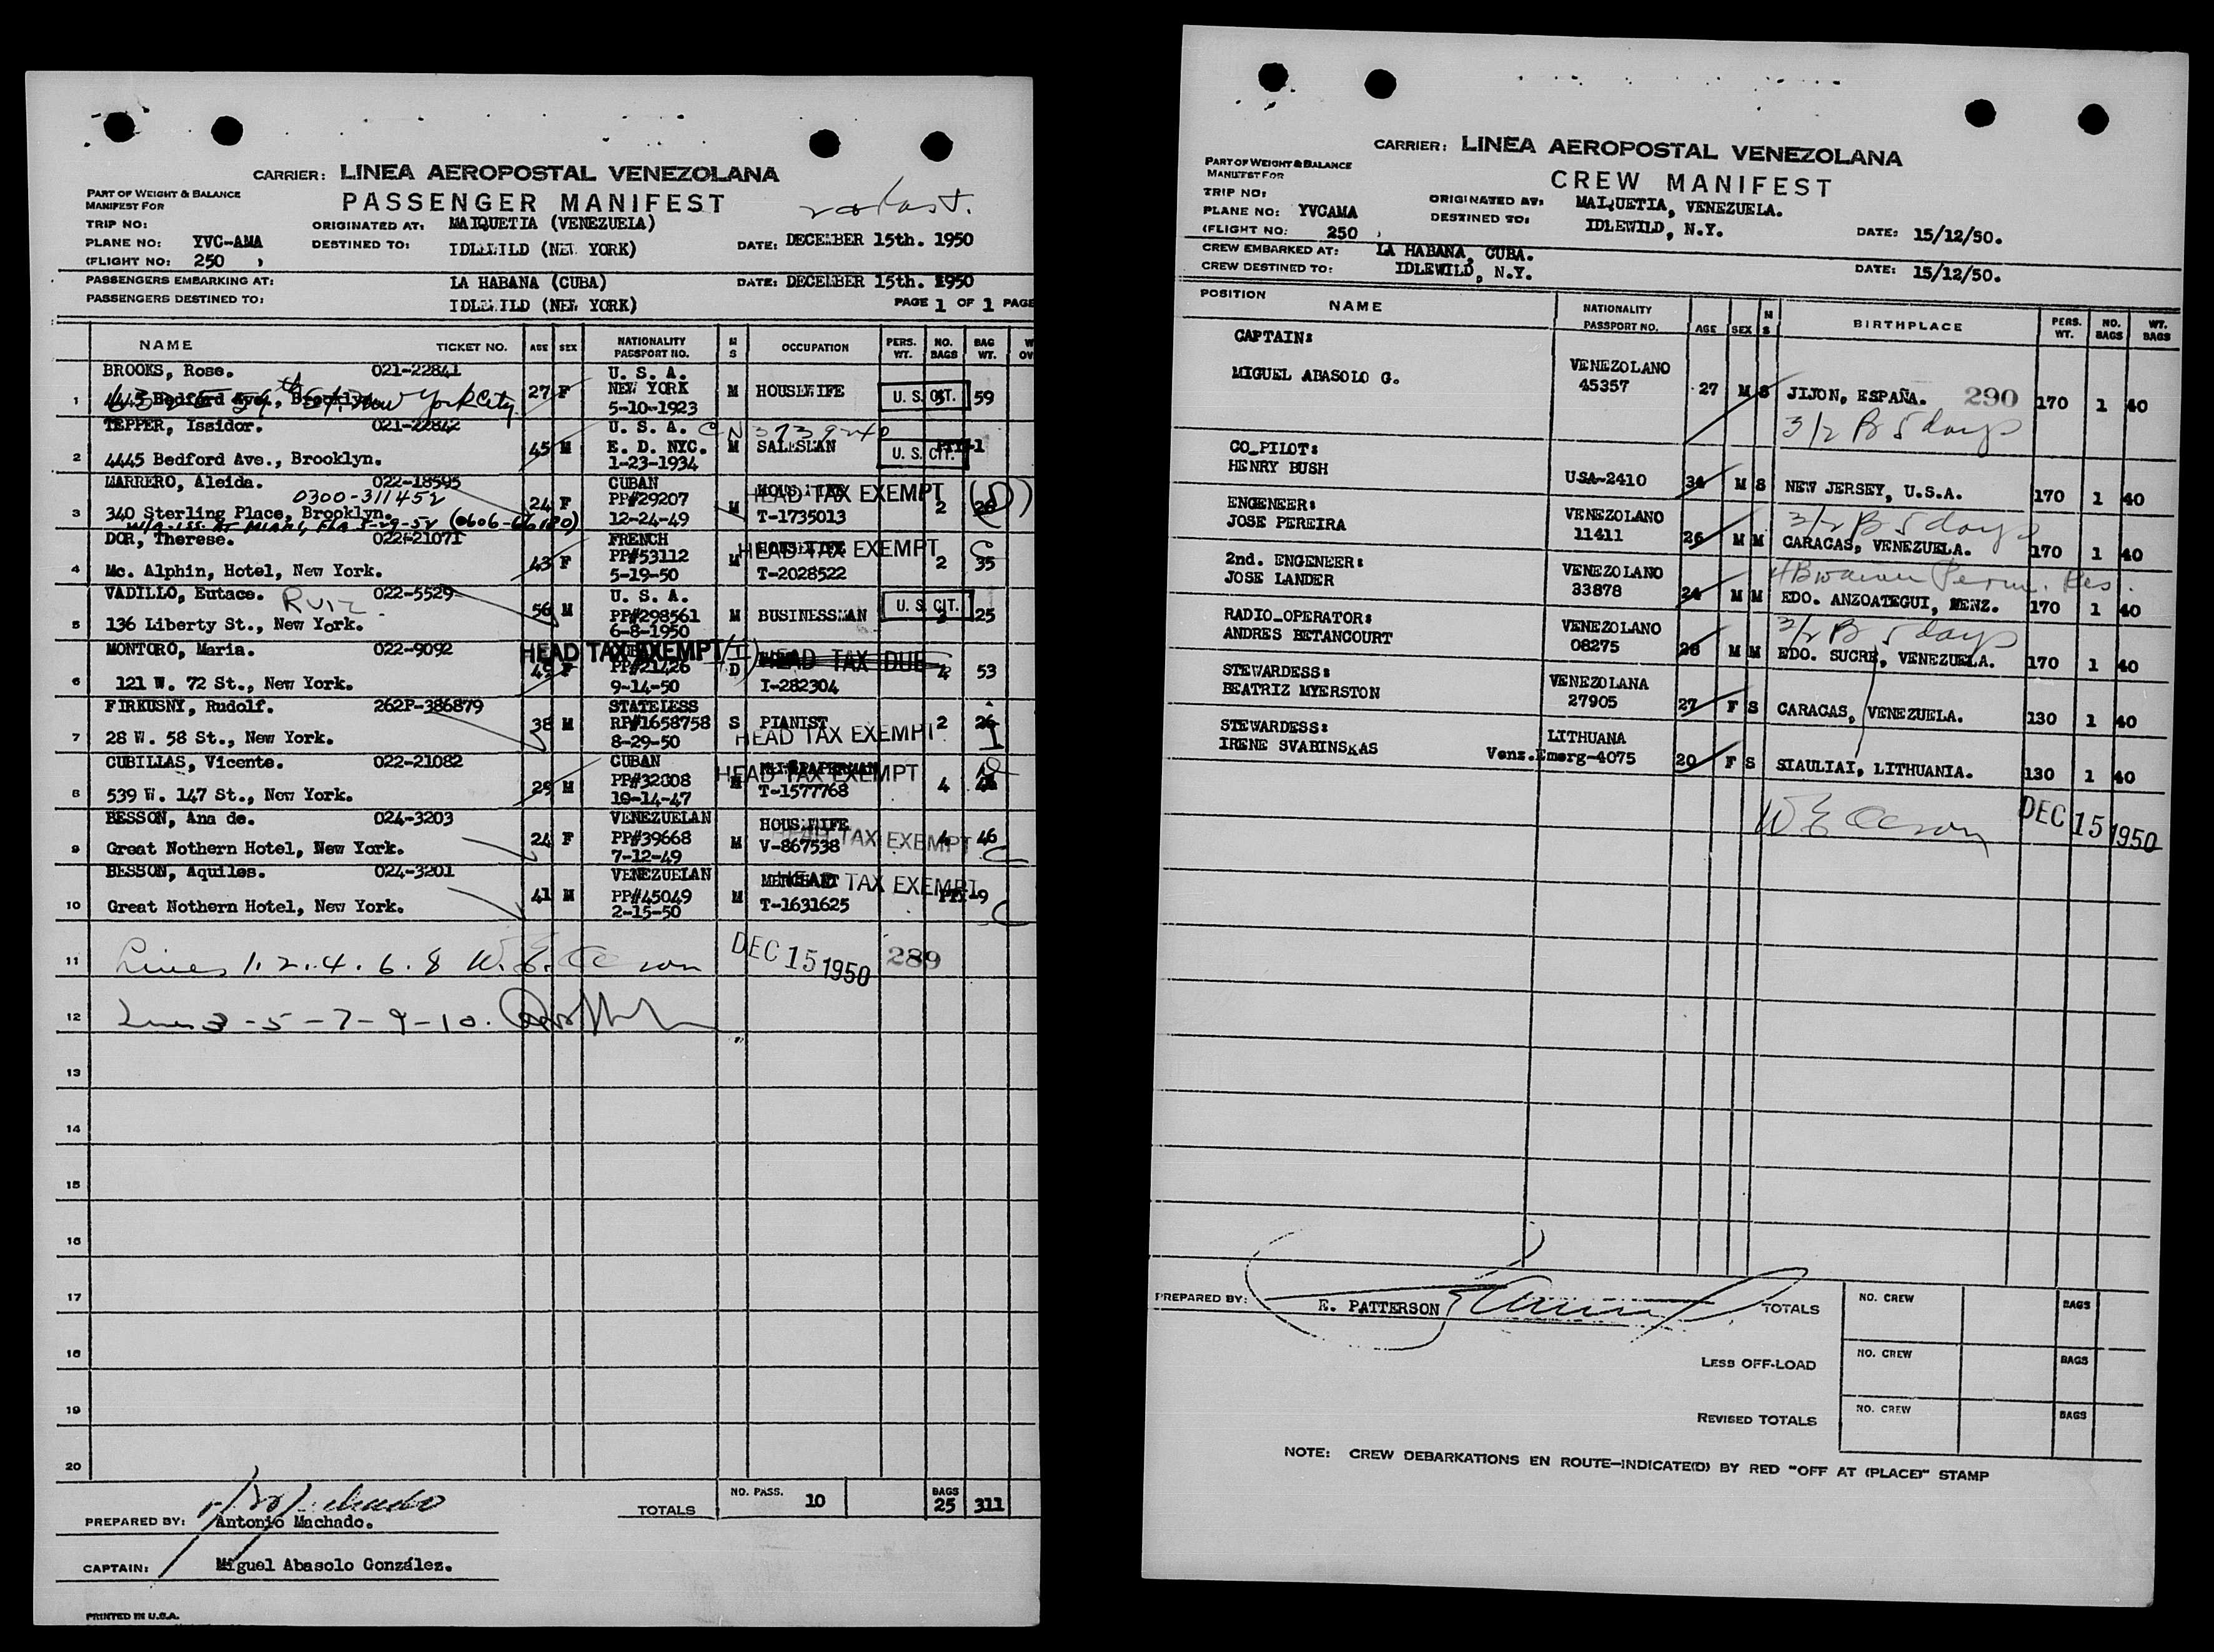 CARRIER: LINEA AEROPOSTAL VENEZOLANA
PASSENGER MANIFEST
PART OF WEIGHT & BALANCE
MANIFEST FOR
TRIP NO:
PLANE NO: YVC-AMA
(FLIGHT NO: 250 )
ORIGINATED AT: MAIQUETIA (VENEZUELA)
DESTINED TO: IDLEWILD (NEW YORK)
DATE: DECEMBER 15th. 1950
PASSENGERS EMBARKING AT: LA HABANA (CUBA) DATE: DECEMBER 15th. 1950
PASSENGERS DESTINED TO: IDLEWILD (NEW YORK) PAGE 1 OF 1 PAGE
NAME TICKET NO. AGE SEX NATIONALITY PASSPORT NO. M S OCCUPATION PERS. WT. NO. BAGS BAG WT. W OV
BROOKS, Rose. 021-22841 U. S. A.
1 4445 Bedford Ave., Brooklyn. New York City 27 F NEW YORK M HOUSEWIFE U. S. CIT. 59
5-10-1923
TEPPER, Issidor. 021-22842 U. S. A. CN 3739240
45 M E. D. NYC. M SALESMAN U. S. CIT.
2 4445 Bedford Ave., Brooklyn. 1-23-1934
MARRERO, Aleida. 022-18595 CUBAN
0300-311452 24 F PP#29207 M HEAD TAX EXEMPT 2 (D)
3 340 Sterling Place, Brooklyn. 12-24-49 T-1735013
W/A iss. AT MIAMI, FLA 5-29-52 (0606-66180)
DOR, Therese. 022-21071 FRENCH
43 F PP#53112 M HEAD TAX EXEMPT 2 35
4 Mc. Alphin, Hotel, New York. 5-19-50 T-2028522
VADILLO, Eutace. Ruiz 022-5529 U. S. A.
56 M PP#298561 M BUSINESSMAN U. S. CIT. 25
5 136 Liberty St., New York. 6-8-1950
MONTORO, Maria. 022-9092 HEAD TAX EXEMPT HEAD TAX DUE
49 F PP#21426 D 4 53
6 121 W. 72 St., New York. 9-14-50 I-282304
FIRKUSNY, Rudolf. 262P-386879 STATELESS
38 M RP#1658758 S PIANIST 2 26
7 28 W. 58 St., New York. 8-29-50 HEAD TAX EXEMPT
CUBILLAS, Vicente. 022-21082 CUBAN
29 M PP#32808 M HEAD TAX EXEMPT 4
8 539 W. 147 St., New York. 10-14-47 T-1577768
BESSON, Ana de. 024-3203 VENEZUELAN HOUSEWIFE
24 F PP#39668 M HEAD TAX EXEMPT 4 46
9 Great Nothern Hotel, New York. 7-12-49 V-867538
BESSON, Aquiles. 024-3201 VENEZUELAN MERCHANT
41 M PP#45049 M HEAD TAX EXEMPT
10 Great Nothern Hotel, New York. 2-15-50 T-1631625
11 Lines 1.2.4.6.8 W. E. DEC 15 1950 289
12 Lines 3-5-7-9-10.
13
14
15
16
17
18
19
20
TOTALS NO. PASS. 10 BAGS 25 311
PREPARED BY: Antonio Machado.
CAPTAIN: Miguel Abasolo González.
PRINTED IN U.S.A.
CARRIER: LINEA AEROPOSTAL VENEZOLANA
CREW MANIFEST
PART OF WEIGHT & BALANCE
MANIFEST FOR
TRIP NO:
PLANE NO: YVCAMA
(FLIGHT NO: 250 )
ORIGINATED AT: MAIQUETIA, VENEZUELA.
DESTINED TO: IDLEWILD, N.Y.
DATE: 15/12/50.
CREW EMBARKED AT: LA HABANA, CUBA.
CREW DESTINED TO: IDLEWILD, N.Y. DATE: 15/12/50.
POSITION NAME NATIONALITY PASSPORT NO. AGE SEX M S BIRTHPLACE PERS. WT. NO. BAGS WT. BAGS
CAPTAIN:
MIGUEL ABASOLO G. VENEZOLANO 45357 27 M S JIJON, ESPAÑA. 290 170 1 40
3/2 B 5 days
CO_PILOT:
HENRY BUSH USA-2410 34 M S NEW JERSEY, U.S.A. 170 1 40
ENGENEER: 3/2 B 5 days
JOSE PEREIRA VENEZOLANO 11411 26 M M CARACAS, VENEZUELA. 170 1 40
2nd. ENGENEER: Perm. Res.
JOSE LANDER VENEZOLANO 33878 24 M M EDO. ANZOATEGUI, VENZ. 170 1 40
RADIO_OPERATOR: 3/2 B 5 days
ANDRES BETANCOURT VENEZOLANO 08275 28 M M EDO. SUCRE, VENEZUELA. 170 1 40
STEWARDESS:
BEATRIZ MYERSTON VENEZOLANA 27905 27 F S CARACAS, VENEZUELA. 130 1 40
STEWARDESS:
IRENE SVABINSKAS LITHUANA Venz.Emerg-4075 20 F S SIAULIAI, LITHUANIA. 130 1 40
DEC 15 1950
PREPARED BY: E. PATTERSON TOTALS NO. CREW BAGS
LESS OFF-LOAD NO. CREW BAGS
REVISED TOTALS NO. CREW BAGS
NOTE: CREW DEBARKATIONS EN ROUTE—INDICATE(D) BY RED "OFF AT (PLACE)" STAMP